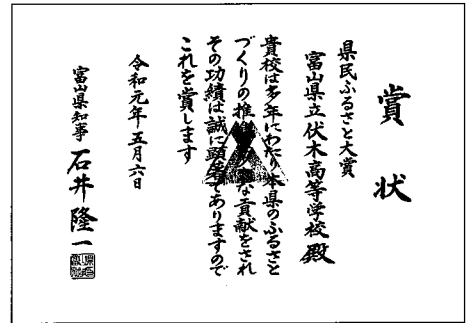 賞状
県民ふるさと大賞
富山県立伏木高等学校殿
貴校は多年にわたり本県のふるさと
づくりの推進な貢献をされ
その功績は誠に顕著でありますので
これを賞します
令和元年五月六日
富山県知事 石井隆一